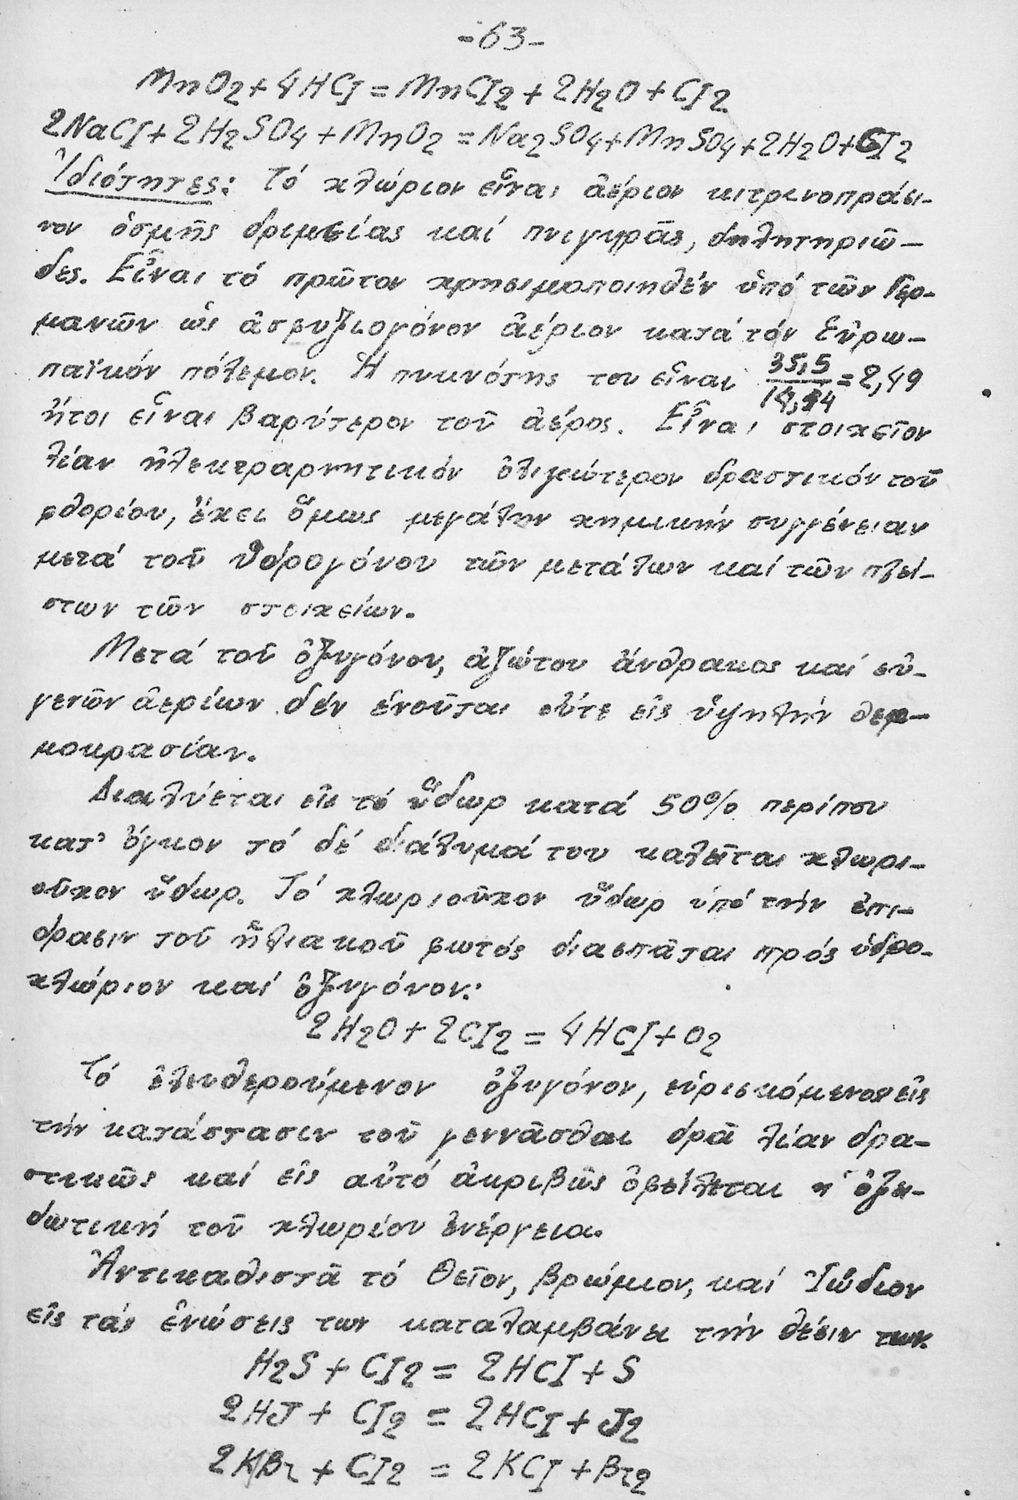 -63-
MnO2 + 4HCl = MnCl2 + 2H2O + Cl2
2NaCl + 2H2SO4 + MnO2 = Na2SO4 + MnSO4 + 2H2O + Cl2
Ἰδιότητες: Τό χλώριον εἶναι ἀέριον κιτρινοπράσι-
νον ὀσμῆς δριμείας καί πνιγηρᾶς, δηλητηριῶ-
δες. Εἶναι τό πρῶτον χρησιμοποιηθέν ὑπό τῶν Γερ-
μανῶν ὡς ἀσφυξιογόνον ἀέριον κατά τόν Εὐρω-
παϊκόν πόλεμον. Ἡ πυκνότης του εἶναι 35,5/14,4 = 2,49
ἤτοι εἶναι βαρύτερον τοῦ ἀέρος. Εἶναι στοιχεῖον
λίαν ἠλεκτραρνητικόν ὀλιγώτερον δραστικόν τοῦ
φθορίου, ἔχει ὅμως μεγάλην χημικήν συγγένειαν
μετά τοῦ ὑδρογόνου τῶν μετάλων καί τῶν πλεί-
στων τῶν στοιχείων.
Μετά τοῦ ὀξυγόνου, ἀζώτου ἄνθρακος καί εὐ-
γενῶν ἀερίων δέν ἑνοῦται οὔτε εἰς ὑψηλήν θερ-
μοκρασίαν.
Διαλύεται εἰς τό ὕδωρ κατά 50% περίπου
κατ' ὄγκον τό δέ διάλυμά του καλεῖται χλωρι-
οῦχον ὕδωρ. Τό χλωριοῦχον ὕδωρ ὑπό τήν ἐπί-
δρασιν τοῦ ἡλιακοῦ φωτός διασπᾶται πρός ὑδρο-
χλώριον καί ὀξυγόνον:
2H2O + 2Cl2 = 4HCl + O2
Τό ἐλευθερούμενον ὀξυγόνον, εὑρισκόμενον εἰς
τήν κατάστασιν τοῦ γεννᾶσθαι δρᾶ λίαν δρα-
στικῶς καί εἰς αὐτό ἀκριβῶς ὀφείλεται ἡ ὀξει-
δωτική τοῦ χλωρίου ἐνέργεια.
Ἀντικαθιστᾶ τό Θεῖον, βρώμιον, καί Ἰώδιον
εἰς τάς ἑνώσεις των καταλαμβάνει τήν θέσιν των.
H2S + Cl2 = 2HCl + S
2HJ + Cl2 = 2HCl + J2
2KBr + Cl2 = 2KCl + Br2